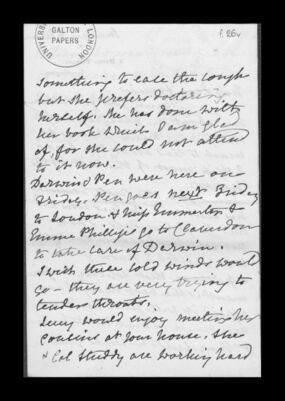 UNIVERSITY LONDON
GALTON
PAPERS
f. 26v
something to ease the cough
but she prefers doctoring
herself. She has done with
her book which I am glad
of, for she could not attend
to it now.
Darwin & Pen were here on
Friday. Pen goes next Friday
to London & Miss Emmerton &
Emma Phillips go to Claverdon
to take care of Darwin.
I wish these cold winds would
go - they are very trying to
tender throats.
Lucy would enjoy meeting her
cousins at your house. She
& Col Studdy are working hard